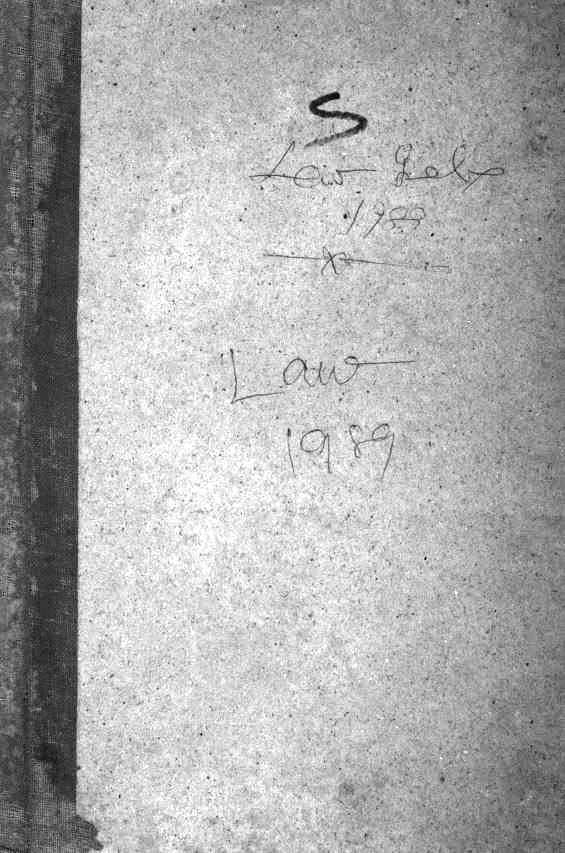 S
Law
1989
Law
1989